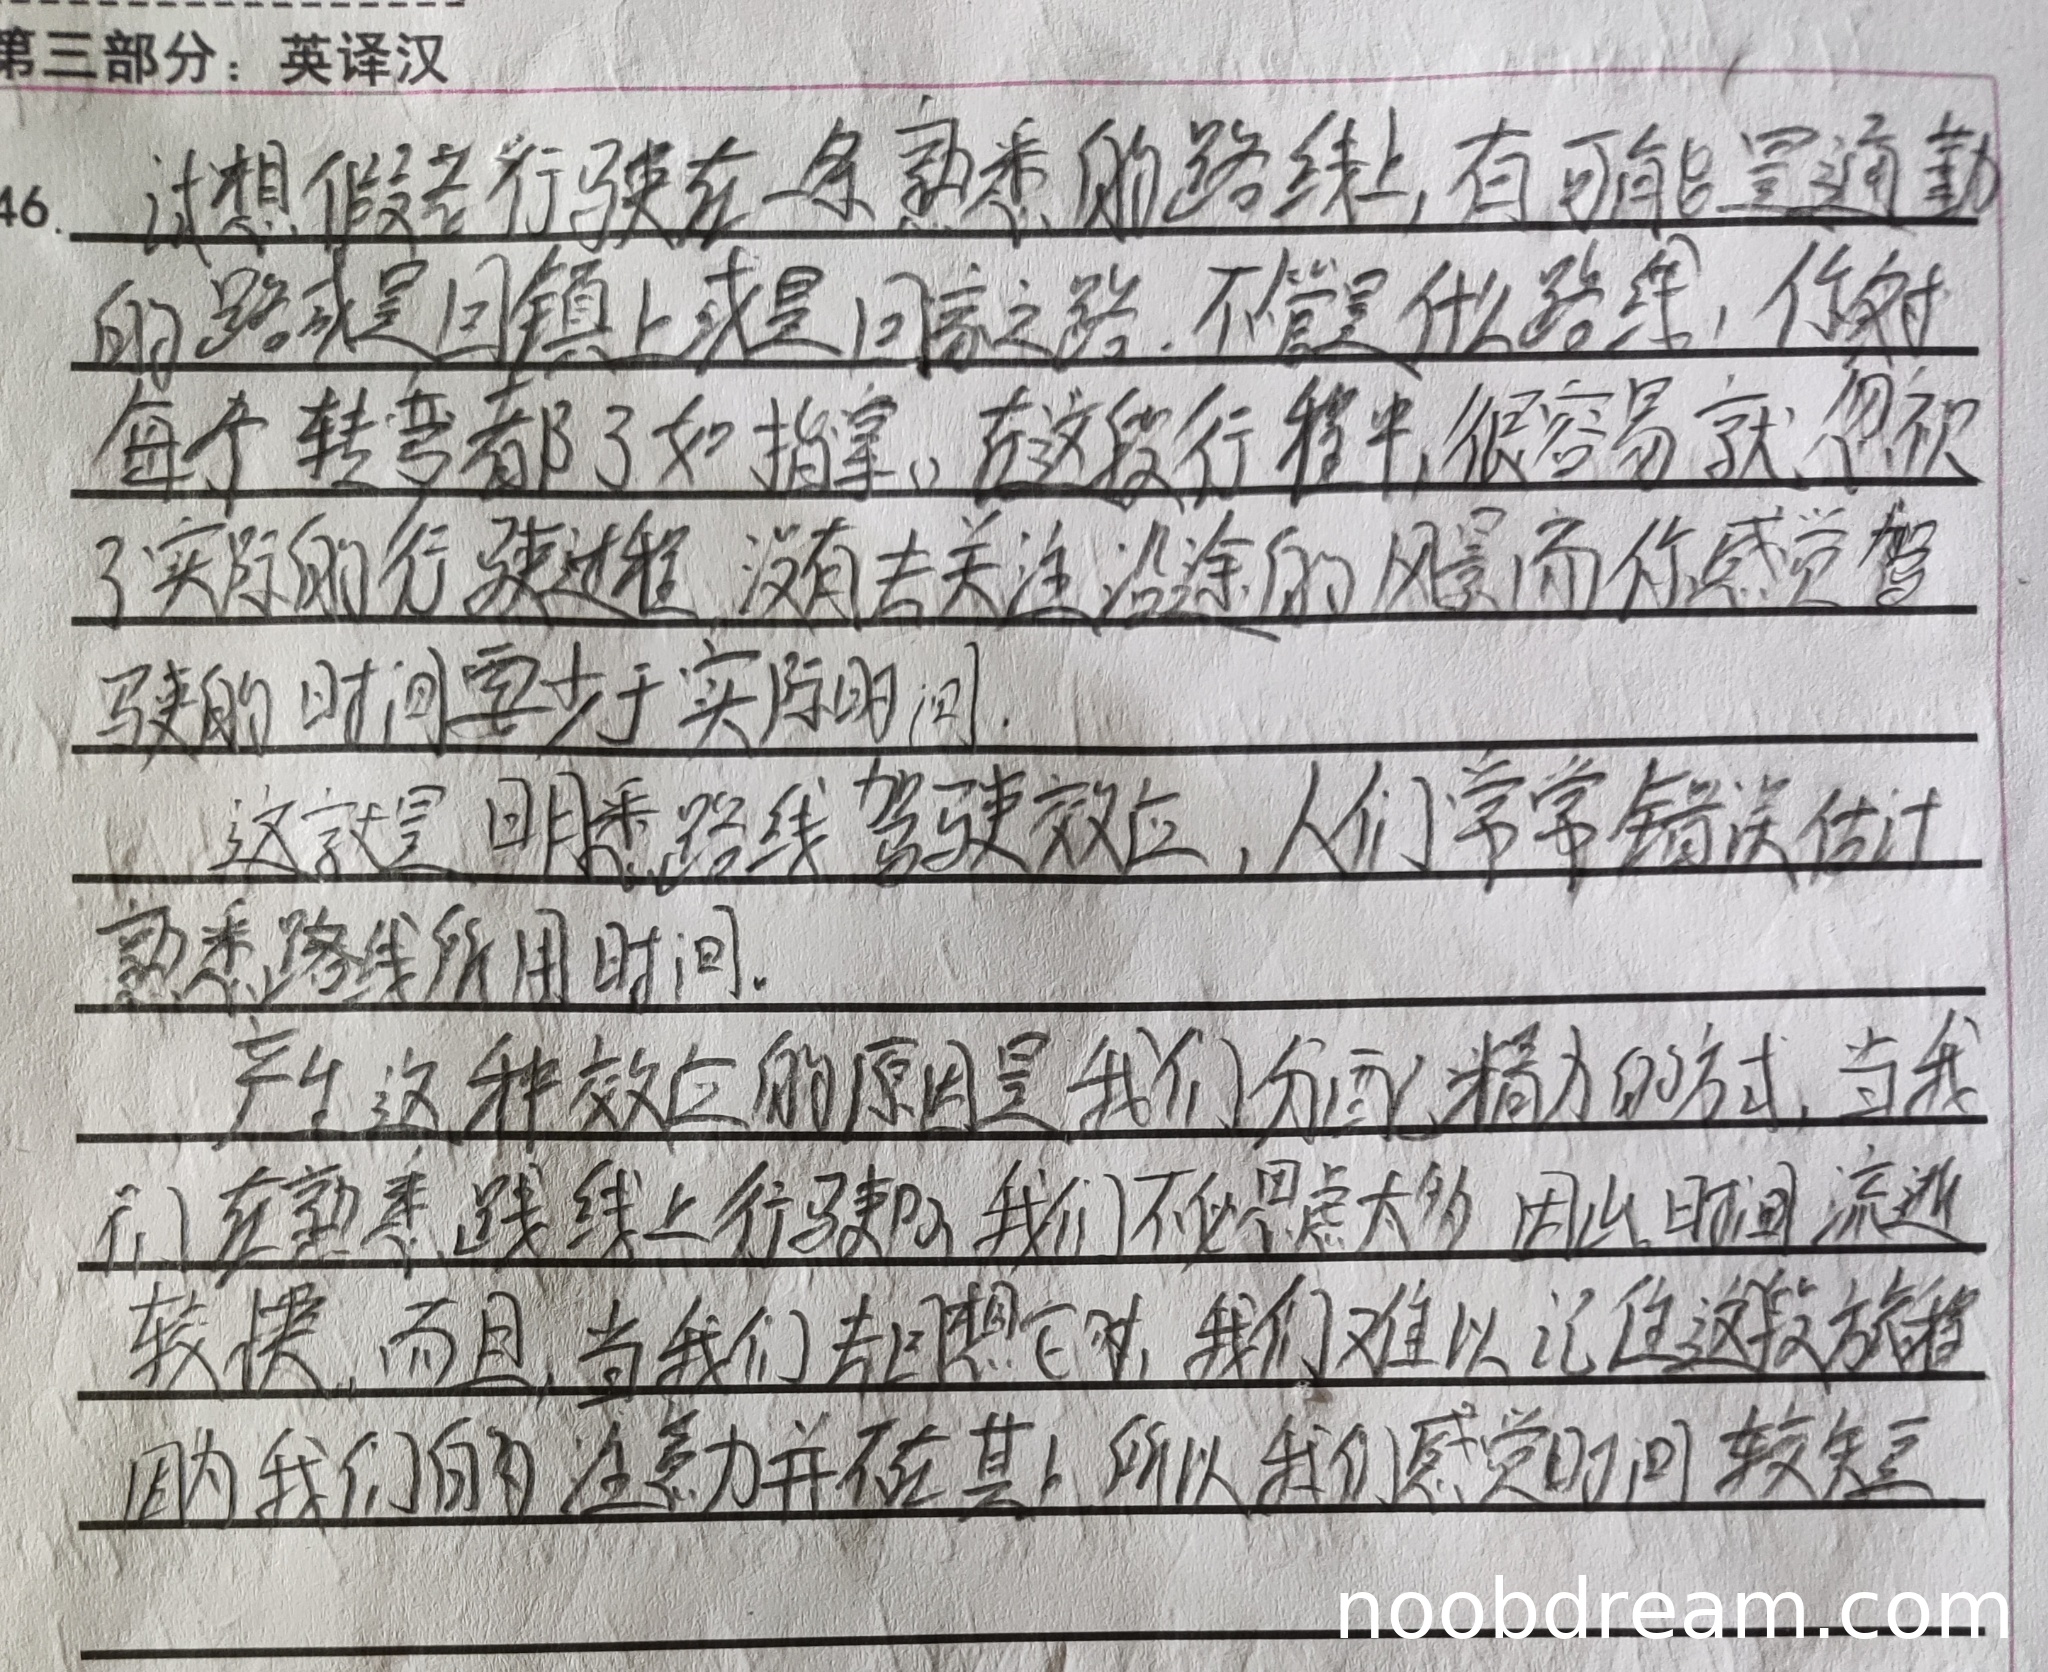 第三部分：英译汉
46. 试想假若行驶在一条熟悉的路线上,有可能是通勤
的路或是回镇上或是回家之路.不管是什么路线,你对
每个转弯都了如指掌。在这段行程中,很容易就忽视
了实际的行驶过程 没有去关注沿途的风景而你感觉驾
驶的时间要少于实际时间.
这就是 明悉路线驾驶效应,人们常常错误估计
熟悉路线所用时间.
产生这种效应的原因是我们分配精力的方式,当我
们在熟悉 线上行驶时 我们不必思虑太多 因此 时间流逝
较快。而且,当我们去回想它时,我们难以记住这段旅程
因为我们的注意力并不在其上 所以我们感觉时间较短
noobdream.com